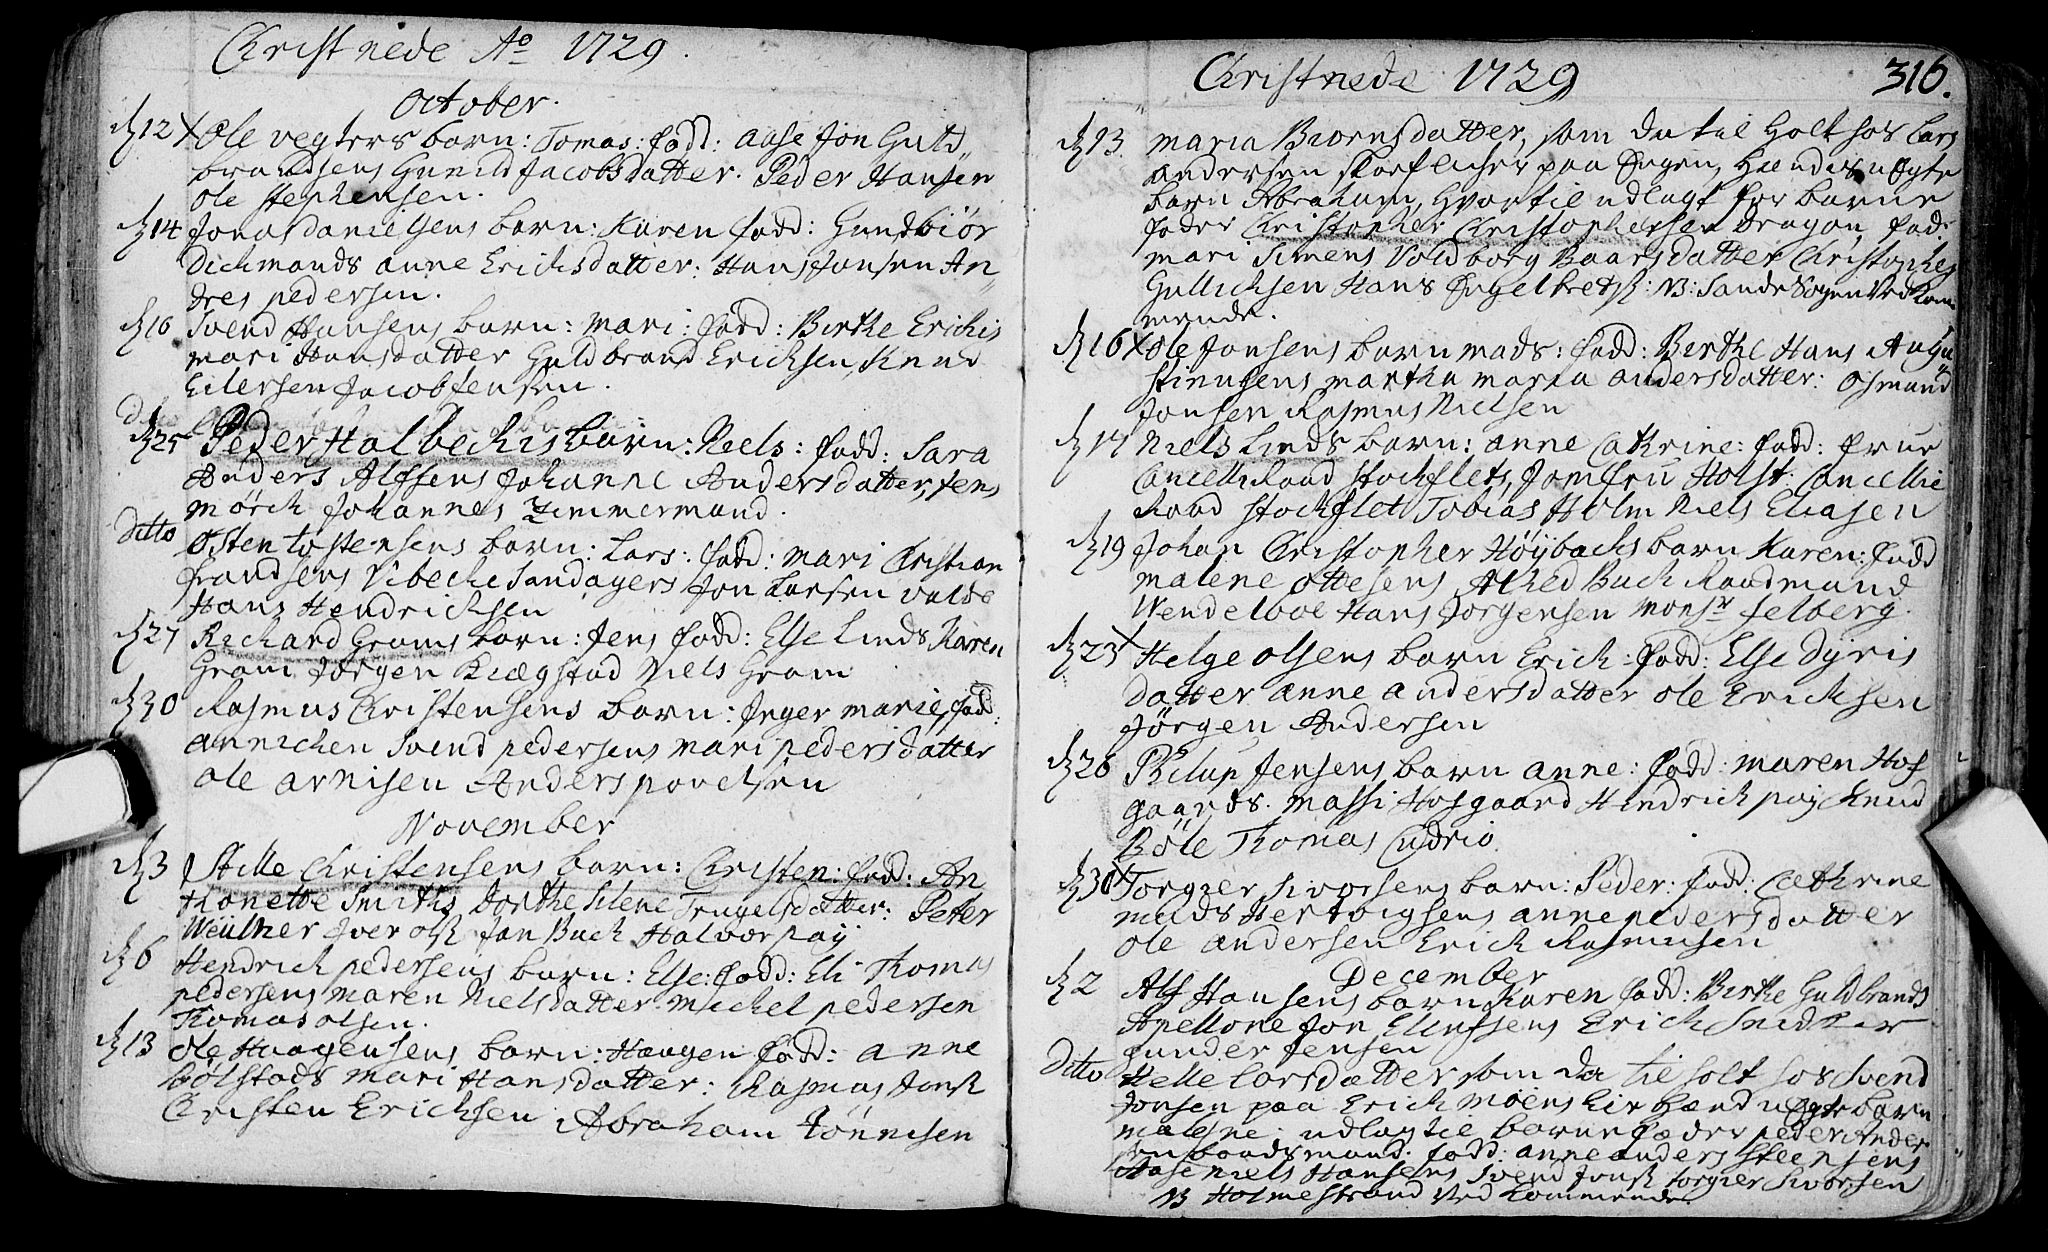 Christnede Ao 1729.
October.
d 12 X Ole vegters barn: Tomas: fadd: Aase Jon Guld
brandsens Gunild Jacobsdatter. Peder Hansen
ole Stephensen.
d 14 Jonas danielsens barn: Karen fadd: Gundbiør
Dichmands anne Ericksdatter: Hans Jonsen An
dres pedersen.
d 16 Svend Hansens barn: mari: fadd: Birthe Erichs
mari Hansdatter Guldbrand Ericksen, Knud
Eilersen Jacob Jensen.
d 25 Peder Holbechis barn: Niels: fadd: Sara
Anders Alfsens Johanne Andersdatter, Jens
mörch Johannes Zimmermand.
Ditto Østen tostensens barn: Lars: fadd: mari Christian
frandsens Vibeche Sandagers Jon Larsen
Hans Hendricksen
d 27 Richard Grams barn: Jens fadd: Else Linds Karen
Gram Jørgen Kiægstad Niels Gram
d 30 Rasmus Christensens barn: Inger marie, fadd:
annichen Svend pedersens mari pedersdatter
ole arnisen Anders povelsen
November
d 3 Stille Christensens barn: Christen: fadd: An
thonette Smiths dorthe Silene Trugelsdatter: Peter
Weülner Iver ols Jan Buch Halvor paÿ
d 6 Hendrick pedersens barn: Else: fadd: Eli Thomas
pedersens maren Nielsdatter. michel pedersen
Thomas olsen.
d 13 Ole Haagensens barn: Haagen fadd: anne
bølstads mari Hansdatter: Rasmus Jons
Christen Ericksen Abraham Tönnesen
Christnede 1729
316.
d 13. maria Biørnsdatter, som da til Holt hos Lars
andersen paa Øegen, Hendis uEgte
barn Abraham, hvortil udlagt for barne
fader Christopher Christophersen Dragon fadd:
mari Simens Voldborg Baarsdatter Christopher
Gullichsen Hans Engelbrets: NB: Sande Sogen Ved kom
mende.
d 16 X Ole Jonsens barn mads: fadd: Berthe Hans Augu
stinusens martha maria andersdatter: Osmund
Jonsen Rasmus Nielsen
d 17 Niels Linds barn: anne Cathrine: fadd: frue
Cancelli Raad Stockflets, Jomfru Holst: Cancellie
Raad Stockflet Tobias Holm Niels Eliasen
d 19 Johan Christopher Høÿbachs barn Karen: fadd
malene ottesens, Alhed Buch Raadmand
Wendelboe Hans Jorgensen Monsr felberg.
d 23 X Helge olsens barn Erick: fadd: Else Dÿris
datter anne andersdatter ole Ericksen
Jørgen Andersen
d 26 Philup Jensens barn anne: fadd: maren Hof
gaards. massi Hofgaard Hindrick paÿ Knud
Bøle Thomas Cudrio.
d 30 X Torgier Sivorsens barn: Peder: fadd: Cathrine
mads Hertvigsens anne pedersdatter
ole andersen Erick Rasmusen
December
d 2 Alf Hansens barn Karen fadd: Birthe Guldbrands
Apellone Jon Ellefsens Erick Snidker
Gunder Jensen
Ditto Helle Larsdatter som da til holt hos Svend
Jonsen paa Erick Moens hendis uEgte barn
malene. udlagt til barne fader peder Ander
sen baadsmand. fadd: anne anders Steensens
Aase Niels Hansens Svend Jons torgier Sivorsen
NB Holmestrand Ved kommende.